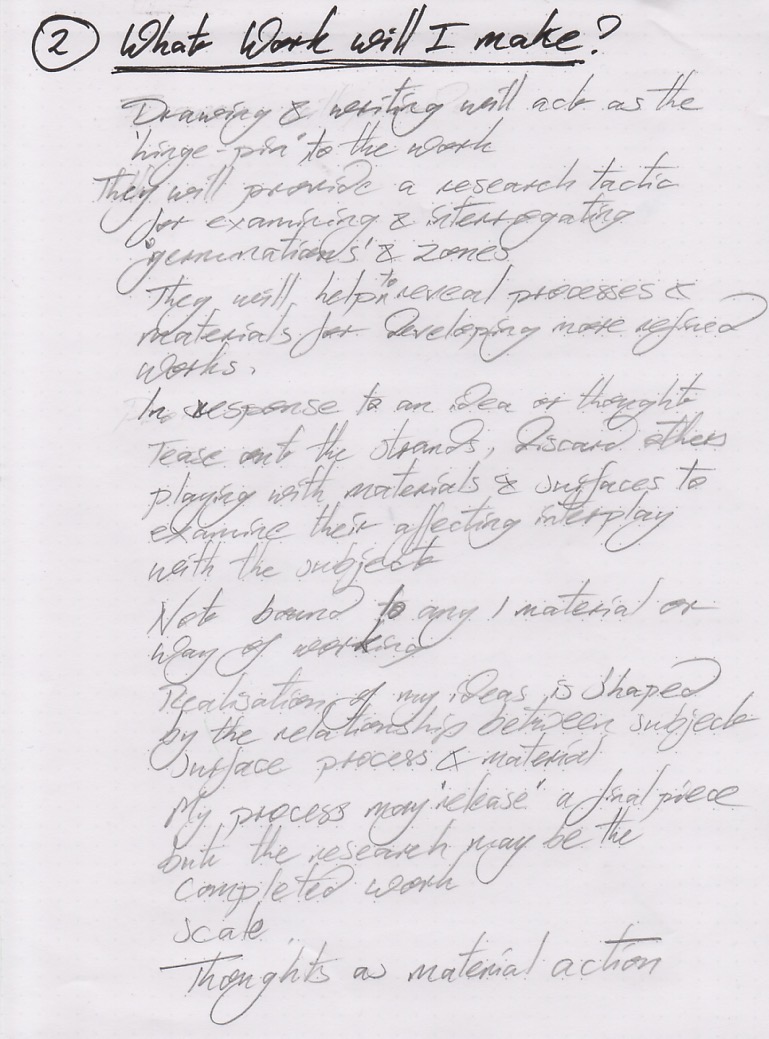 2 What Work will I make?
Drawing & writing will act as the
'hinge-pin' to the work
They will provide a research tactic
for examining & interrogating
'germinations' & zones
They will help to reveal processes &
materials for developing more refined
works.
In response to an idea or thought
Tease out the strands, discard others
playing with materials & surfaces to
examine their affecting interplay
with the subject
Not bound to any 1 material or
way of working
Realisation of my ideas is shaped
by the relationship between subject
surface process & material
My process may "release" a final piece
but the research may be the
completed work
scale
Thoughts as material action